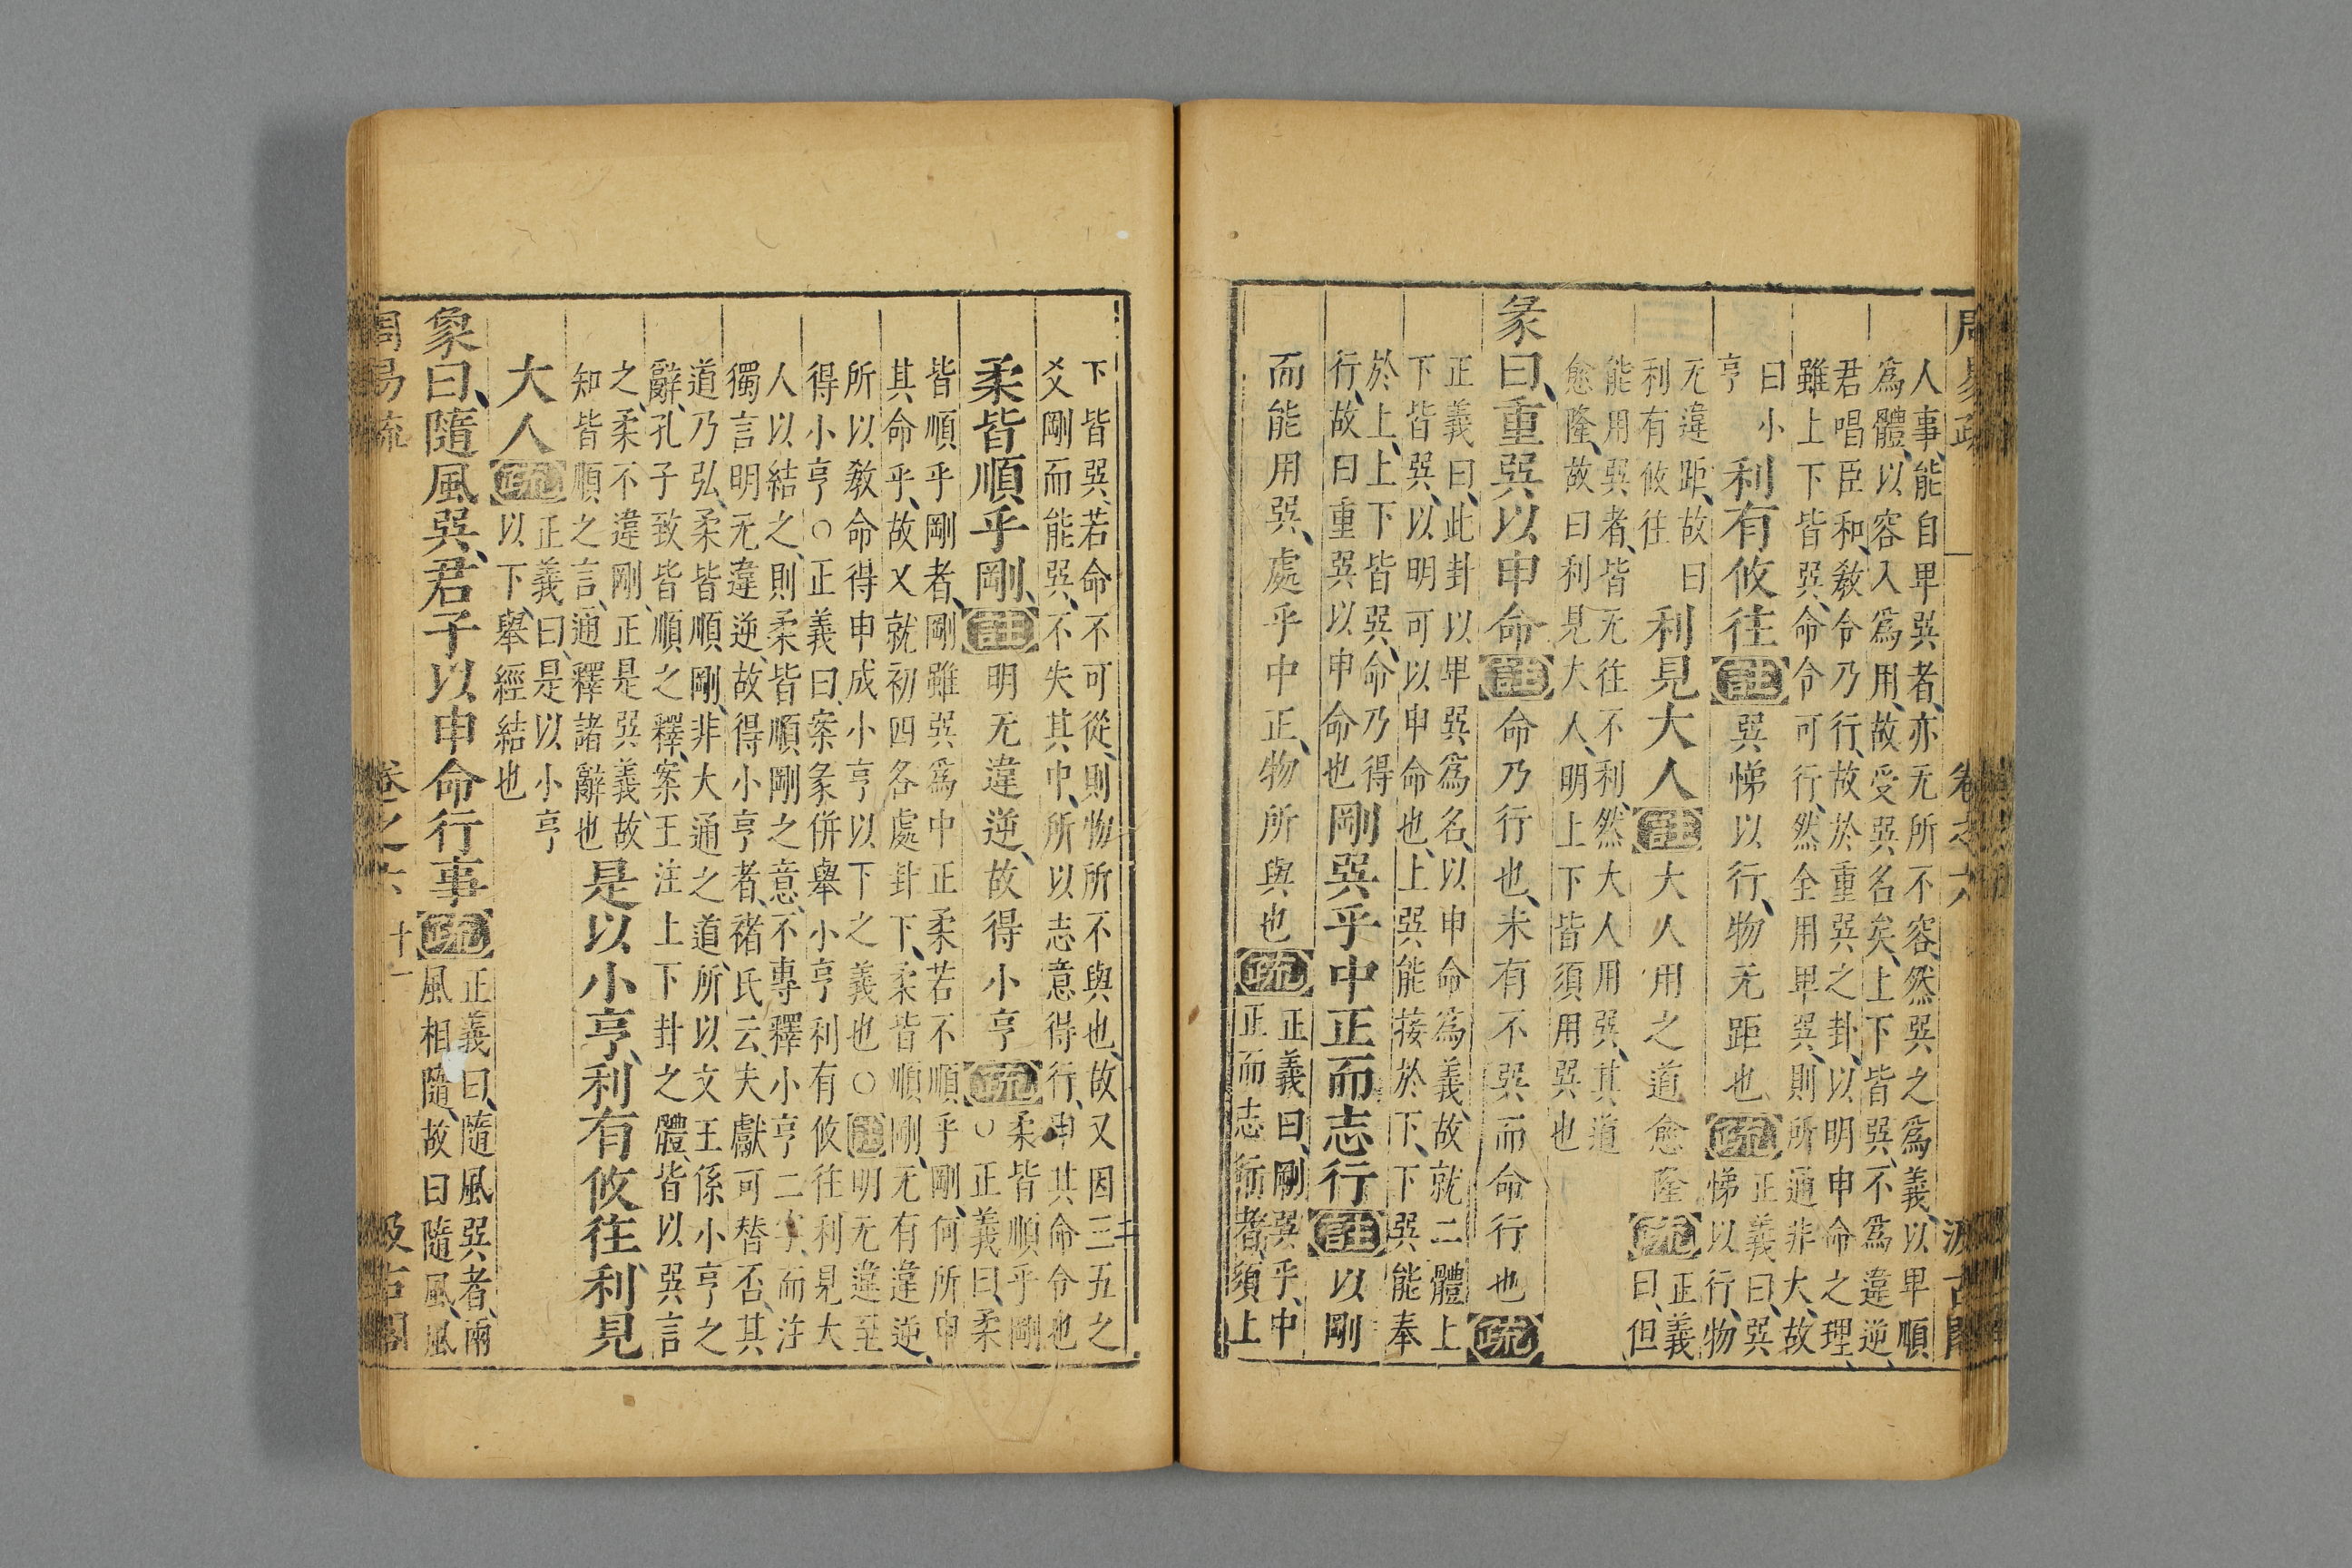 周易疏 卷之六 汲古閣
人事能自卑巽者亦无所不容然巽之爲義以卑順
爲體以容入爲用故受巽名矣上下皆巽不爲違逆
君唱臣和敎令乃行故於重巽之卦以明申命之理
雖上下皆巽命令可行然全用卑巽則所通非大故
曰小
亨
利有攸往註巽悌以行物无距也疏
正義曰巽
悌以行物
无違距故曰
利有攸往
利見大人註大人用之道愈隆疏
正義
曰但
能用巽者皆无往不利然大人用巽其道
愈隆故曰利見大人明上下皆須用巽也
彖曰重巽以申命註命乃行也未有不巽而命行也疏
正義曰此卦以卑巽爲名以申命爲義故就二體上
下皆巽以明可以申命也上巽能接於下下巽能奉
於上上下皆巽命乃得
行故曰重巽以申命也
剛巽乎中正而志行註以剛
而能用巽處乎中正物所與也疏
正義曰剛巽乎中
正而志行者須上
下皆巽若命不可從則物所不與也故又因三五之
爻剛而能巽不失其中所以志意得行申其命令也
柔皆順乎剛註明无違逆故得小亨疏
柔皆順乎剛
○正義曰柔
皆順乎剛者剛雖巽爲中正柔若不順乎剛何所申
其命乎故又就初四各處卦下柔皆順剛无有違逆
所以敎命得申成小亨以下之義也○註明无違至
得小亨○正義曰案彖併舉小亨利有攸往利見大
人以結之則柔皆順剛之意不專釋小亨二字而注
獨言明无違逆故得小亨者褚氏云夫獻可替否其
道乃弘柔皆順剛非大通之道所以文王係小亨之
辭孔子致皆順之釋案王注上下卦之體皆以巽言
之柔不違剛正是巽義故
知皆順之言通釋諸辭也
是以小亨利有攸往利見
大人疏
正義曰是以小亨
以下舉經結也
象曰隨風巽君子以申命行事疏
正義曰隨風巽者兩
風相隨故曰隨風風
周易疏 卷之六 十一 汲古閣